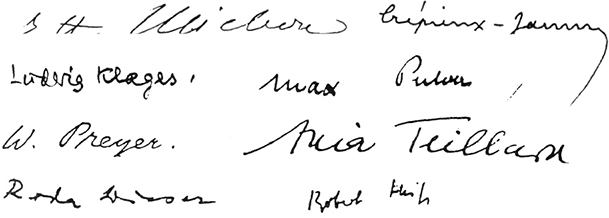 J H. Michon Crépieux-Jamin
Ludwig Klages. Max Pulver
W. Preyer. Ania Teillard
Roda Wieser Robert Heiß